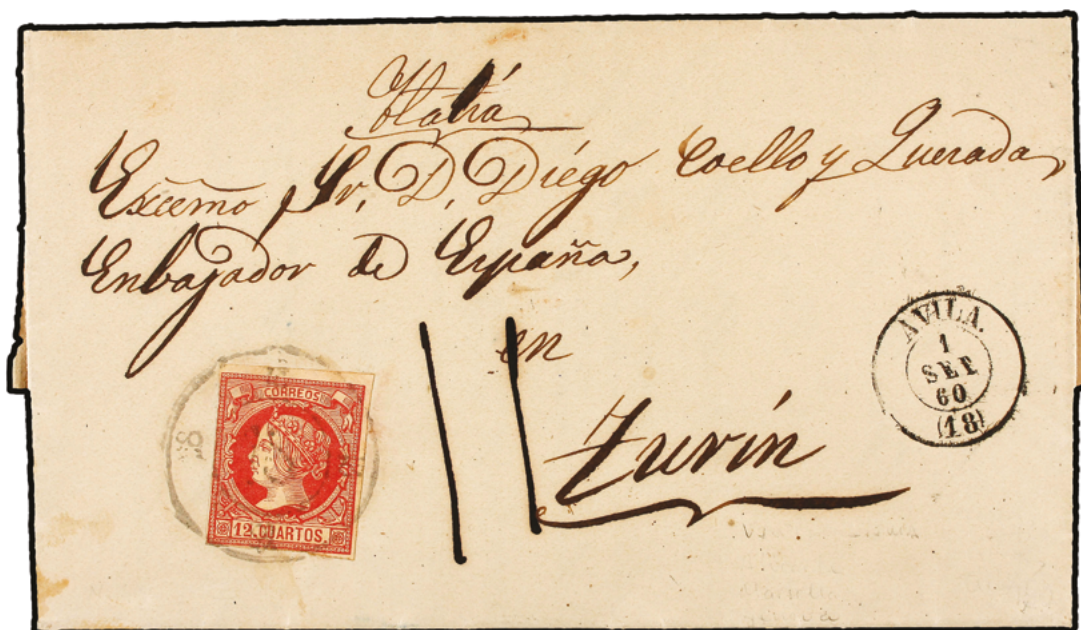 Italia
Excemo Sr, D, Diégo Coello y Querada,
Enbajador de España,
en
Turin
AVILA.
1
SET
60
(18)
CORREOS
12.CUARTOS.